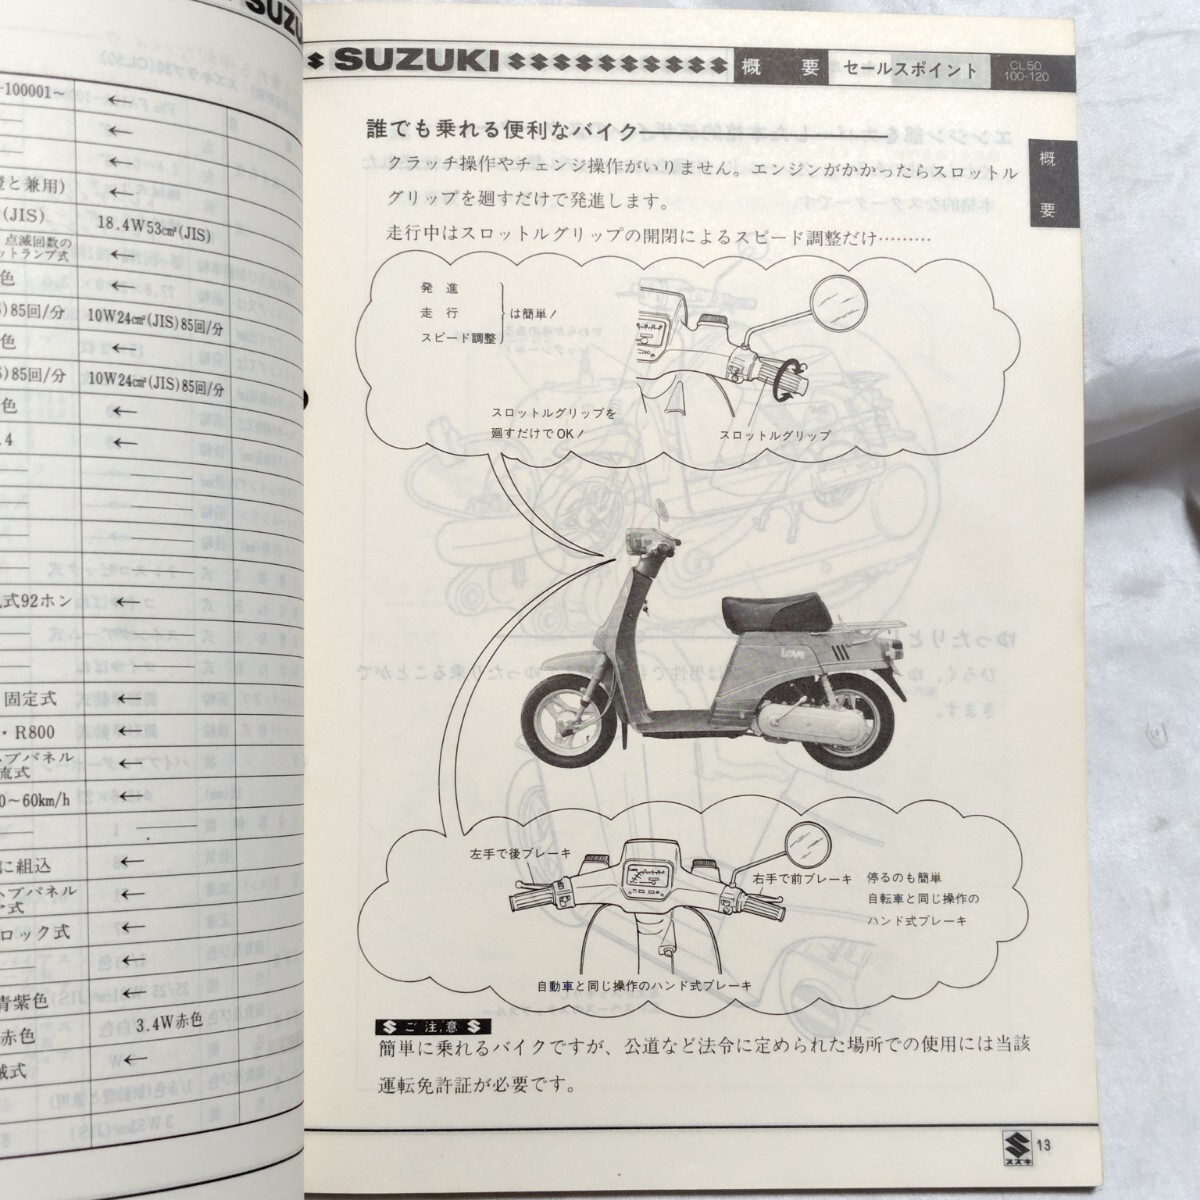 SUZUKI
-100001~ ←
←
←
登と兼用) ←
(JIS) 18.4W53c㎡(JIS)
点滅回数の
ットランプ式 ←
色 ←
S)85回/分 10W24c㎡(JIS)85回/分
色 ←
S)85回/分 10W24c㎡(JIS)85回/分
色 ←
.4 ←
式92ホン ←
固定式 ←
・R800 ←
ヽブパネル
流式 ←
0～60km/h ←
に組込 ←
ヽブパネル
ア式 ←
ロック式 ←
←
青紫色 ←
赤色 3.4W赤色
械式 ←
SUZUKI 概 要 セールスポイント CL50
100-120
概
要
誰でも乗れる便利なバイク
クラッチ操作やチェンジ操作がいりません。エンジンがかかったらスロットル
グリップを廻すだけで発進します。
走行中はスロットルグリップの開閉によるスピード調整だけ………
発 進
走 行 は簡単！
スピード調整
スロットルグリップを
廻すだけでOK！
スロットルグリップ
Love
左手で後ブレーキ
右手で前ブレーキ
停るのも簡単
自転車と同じ操作の
ハンド式ブレーキ
自動車と同じ操作のハンド式ブレーキ
ご注意
簡単に乗れるバイクですが、公道など法令に定められた場所での使用には当該
運転免許証が必要です。
スズキ
13